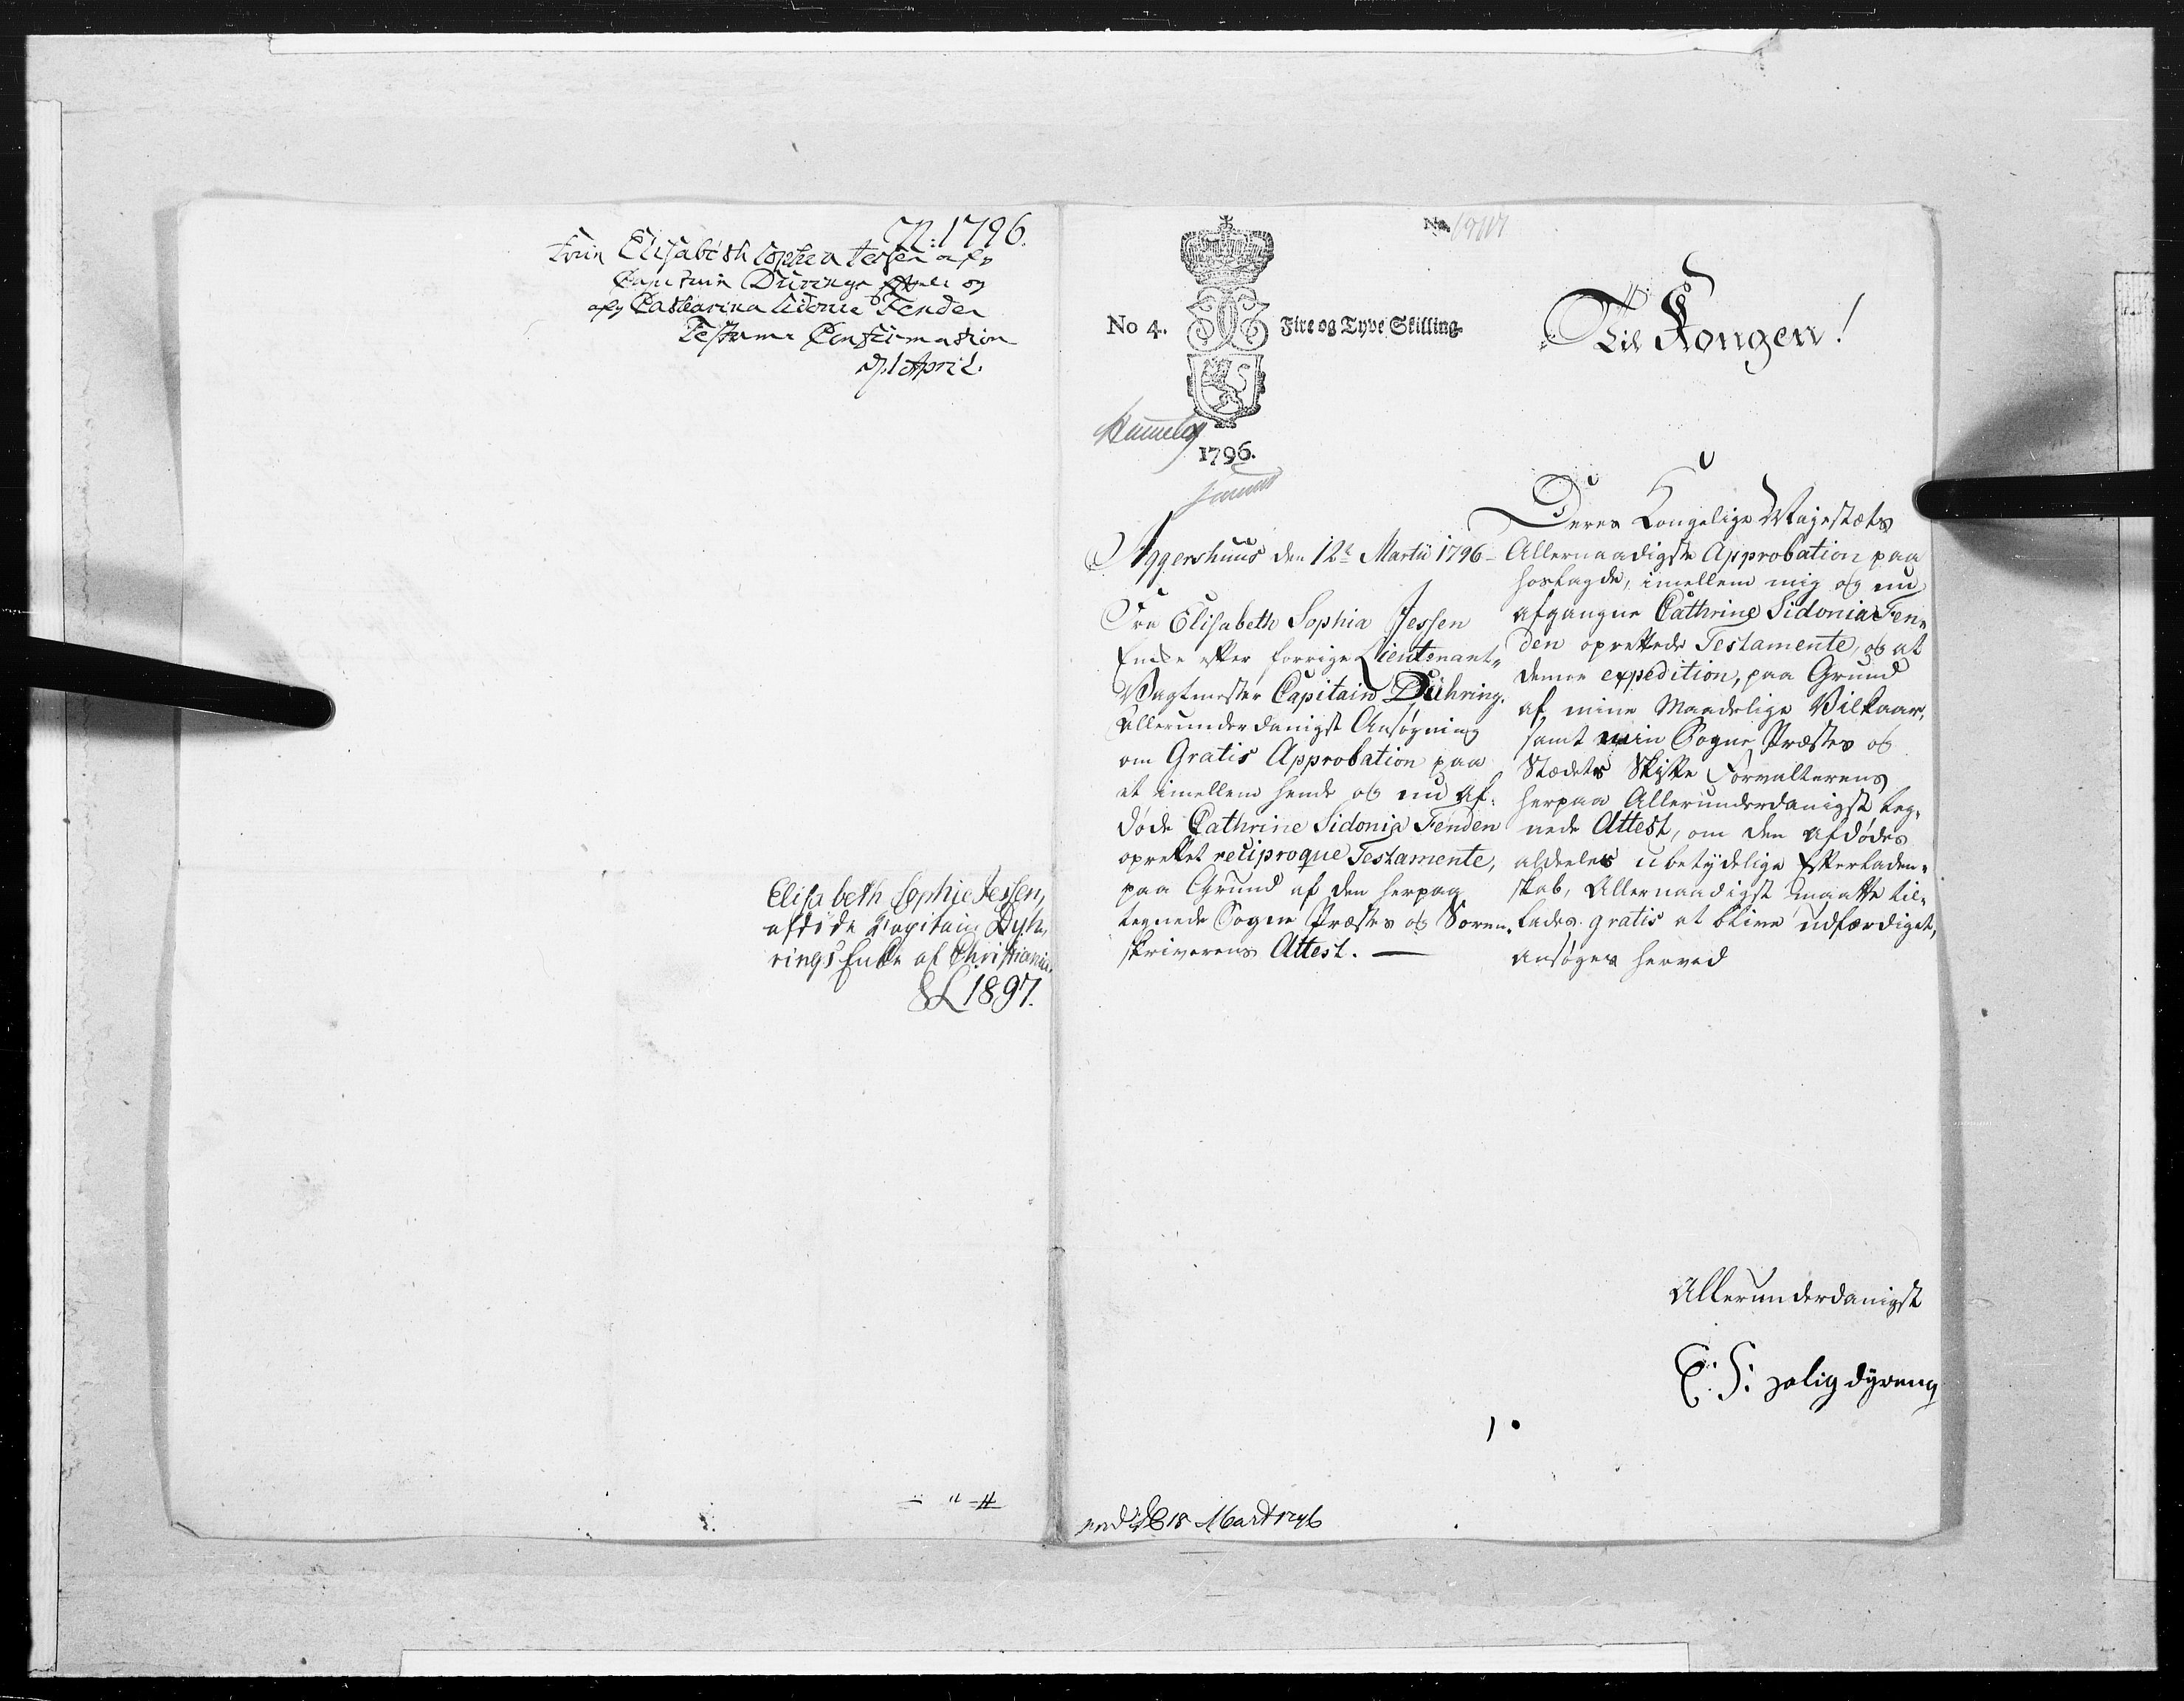 N: 1796.
Frue Elisabeth Sophia Jessen afg
Capitain Dürings Encke og
afg Catharina Sidonia Fenden
Testam: Confirmation
d: 1 April.
Elisabeth Sophie Jessen,
afdøde Kapitain Dyh-
rings Enke af Christiania
SL 1897.
No.
No 4. Fire og Tyve Skilling.
1796.
Til Kongen!
Aggershuus den 12te Martii 1796
Fra Elisabeth Sophia Jessen
Encke efter forrige Lieutenant,
Vagtmester Capitain Dühring.
Allerunderdanigst Ansøgning
om Gratis Approbation paa
et imellem hende og nu af-
døde Cathrine Sidonia Fenden
oprettet reciproque Testamente,
paa Grund af den herpaa
tegnede Sogne Præstes og Soren-
skriverens Attest.
Deres Kongelige Majestæts
Allernaadigste Approbation paa
hoslagde, imellem mig og nu
afgangne Cathrine Sidonia Fen-
den oprettede Testamente, og at
denne expedition, paa Grund
af mine Maadelige Vilkaar,
samt min Sogne Præstes og
Stædets Skifte Forvalterens
herpaa Allerunderdanigst teg-
nede Attest, om den afdødes
aldeeles ubetydelige Efterladen-
skab, Allernaadigst maatte til-
lades gratis at blive udfærdiget,
ansøges herved
Allerunderdanigst
E: S: salig dyreng
1.
18 Mart 1796